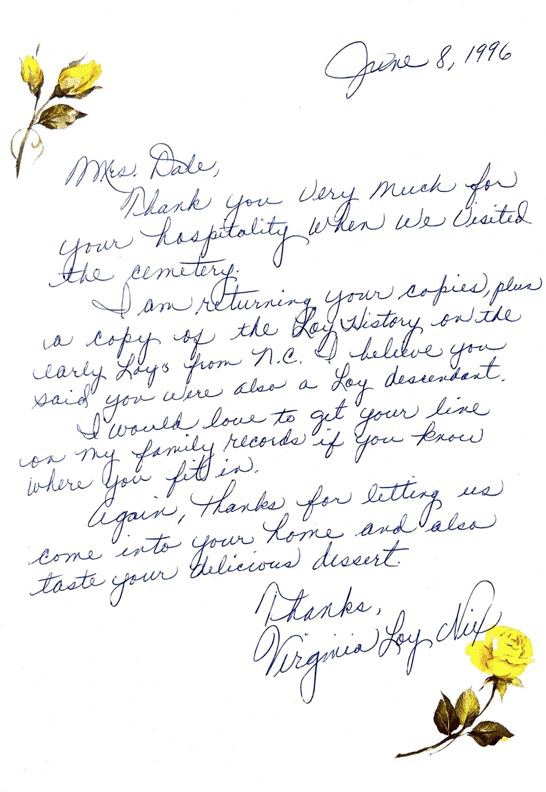 June 8, 1996
Mrs. Dale,
Thank you very much for
your hospitality when we visited
the cemetery.
I am returning your copies, plus
a copy of the Loy History on the
early Loys from N.C. I believe you
said you were also a Loy descendant.
I would love to get your line
on my family records if you know
where you fit in.
Again, thanks for letting us
come into your home and also
taste your delicious dessert.
Thanks,
Virginia Loy Nix